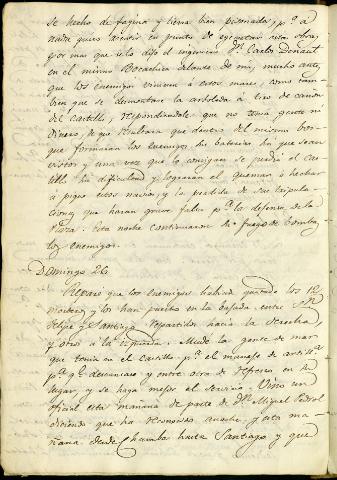 se hecho de fagina y tierra bien pisonada, pª a
nadie quiso atender en punto de egecutar esta obra,
por mas que se lo dijo el ingeniero Dn. Carlos Desnaut
en el mismo Bocachica delante de mi, mucho antes
que los enemigos viniesen a estos mares, como tam-
bien que se desmontase la arboleda a tiro de cañon
del castillo, respondiendole que no tenia gente ni
dinero, de que resultara que dentro del mismo bos-
que formaran los enemigos las baterias sin que sean
vistos y una vez que lo consigan se perdera el cas-
tillo sin dificultad y lograran el quemar o hechar
a pique estos navios, y la perdida de sus tripula-
ciones que haran grave falta pª la defensa de la
Plaza. Esta noche continuaron su fuego de bombas
los enemigos.
Domingo 26.
Reparo que los enemigos habian juntado los 12
morteros y los han puesto en la bajada entre Sn.
Felipe y Santiago repartidos hacia la derecha,
y otros a la izquierda. Mude la gente de mar
que tenia en el Castillo pª el manejo de artillª
pª qe descansara y entre otra de refresco en su
lugar, y se haga mejor el servicio. Vino un
oficial esta mañana de parte de Dn. Miguel Pedrol
diciendo que ha reconocido anoche y esta ma-
ñana desde Chamba hasta Santiago y que